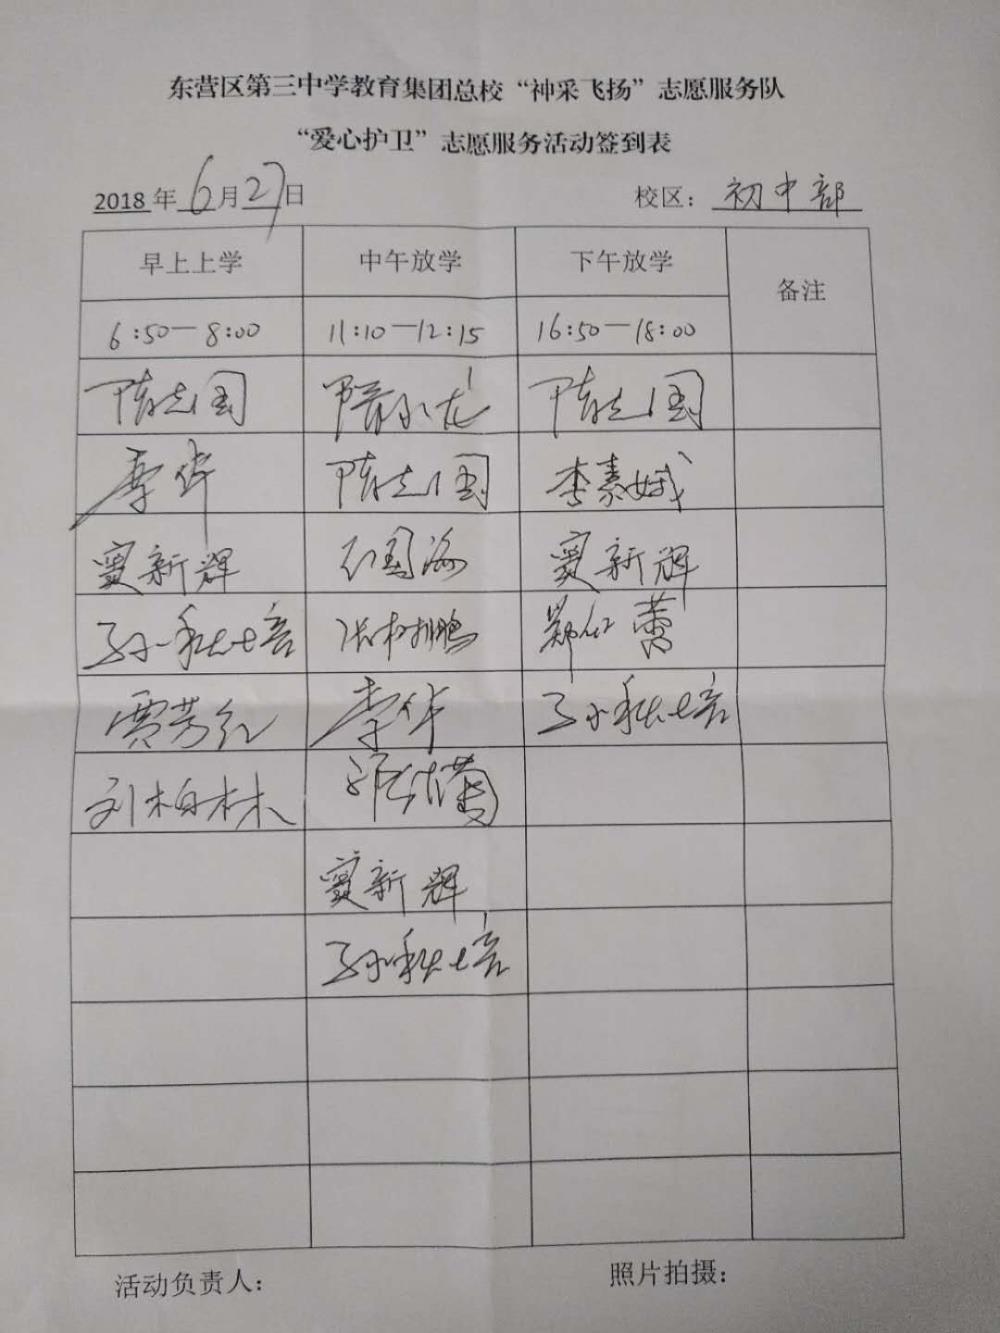 东营区第三中学教育集团总校“神采飞扬”志愿服务队
“爱心护卫”志愿服务活动签到表
2018 年 6 月 27 日 校区：初中部
早上上学 中午放学 下午放学 备注
6:50—8:00 11:10—12:15 16:50—18:00
隋志国 隋小龙 隋志国
李华 隋志国 李素娥
窦新辉 石国海 窦新辉
孙秋培 郑仁蕾
贾芳红 李华 孙秋培
刘柏林
窦新辉
孙秋培
活动负责人： 照片拍摄：